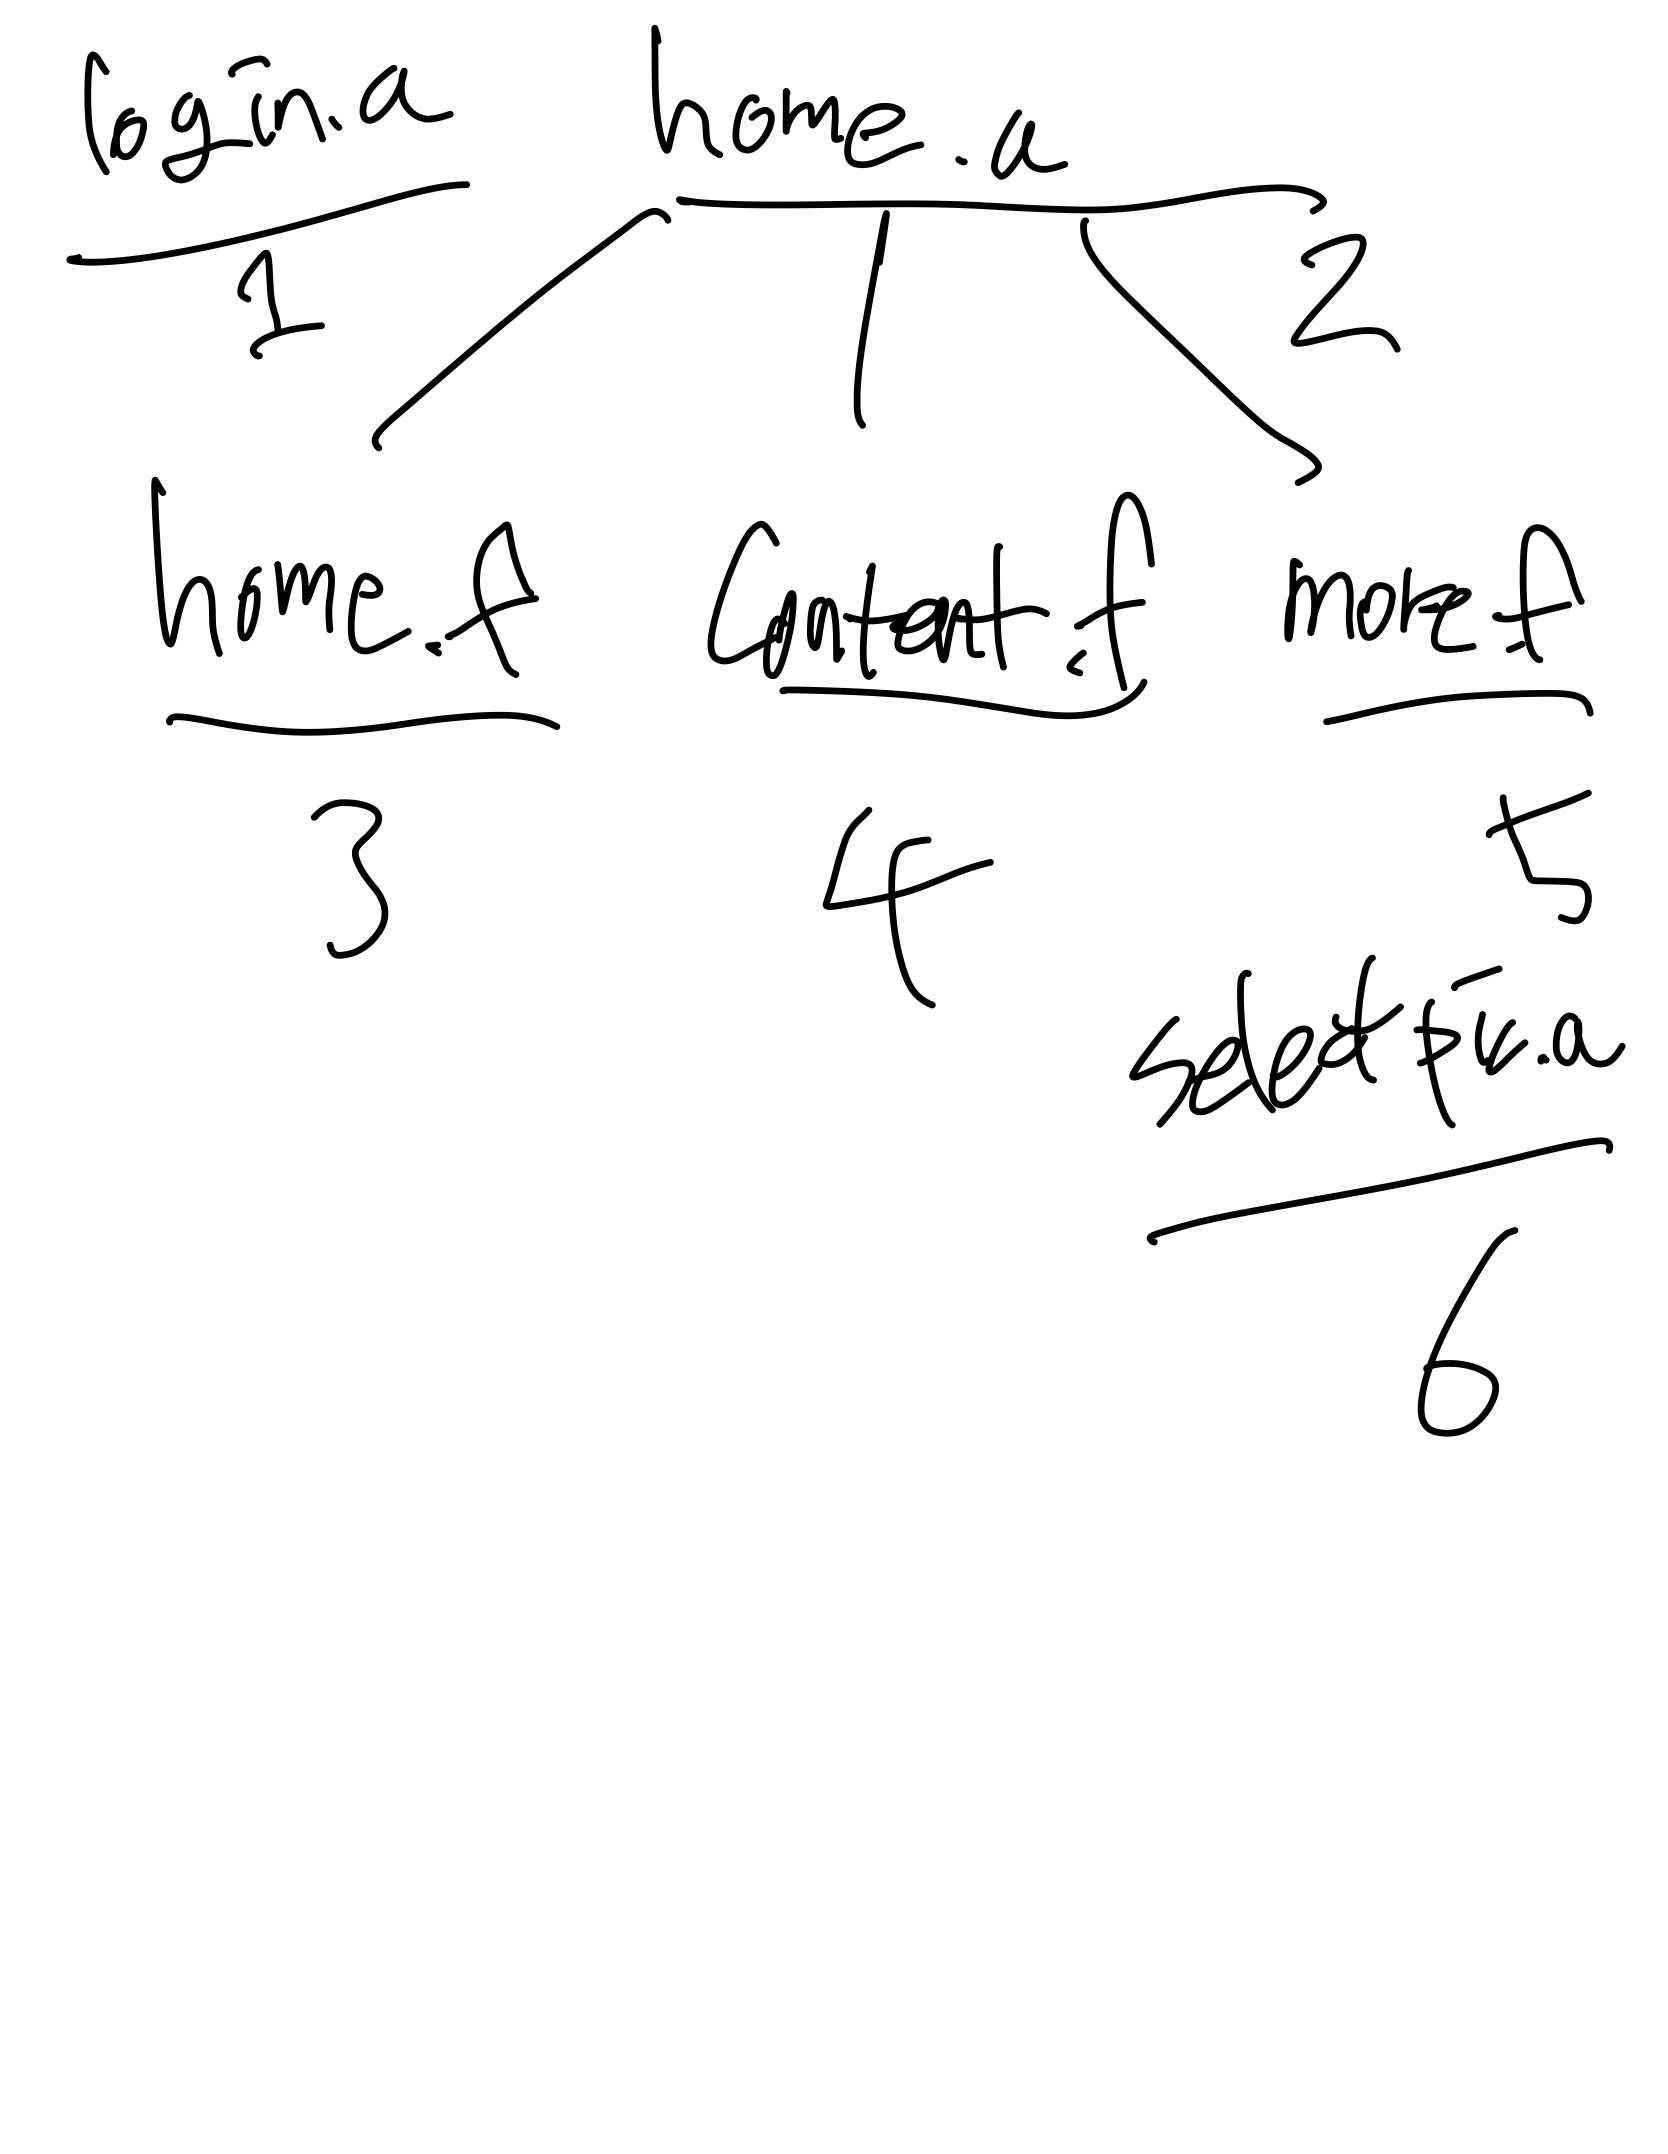 login.a home.a
1 2
home.f Content.f more.f
3 4 5
select pic.a
6